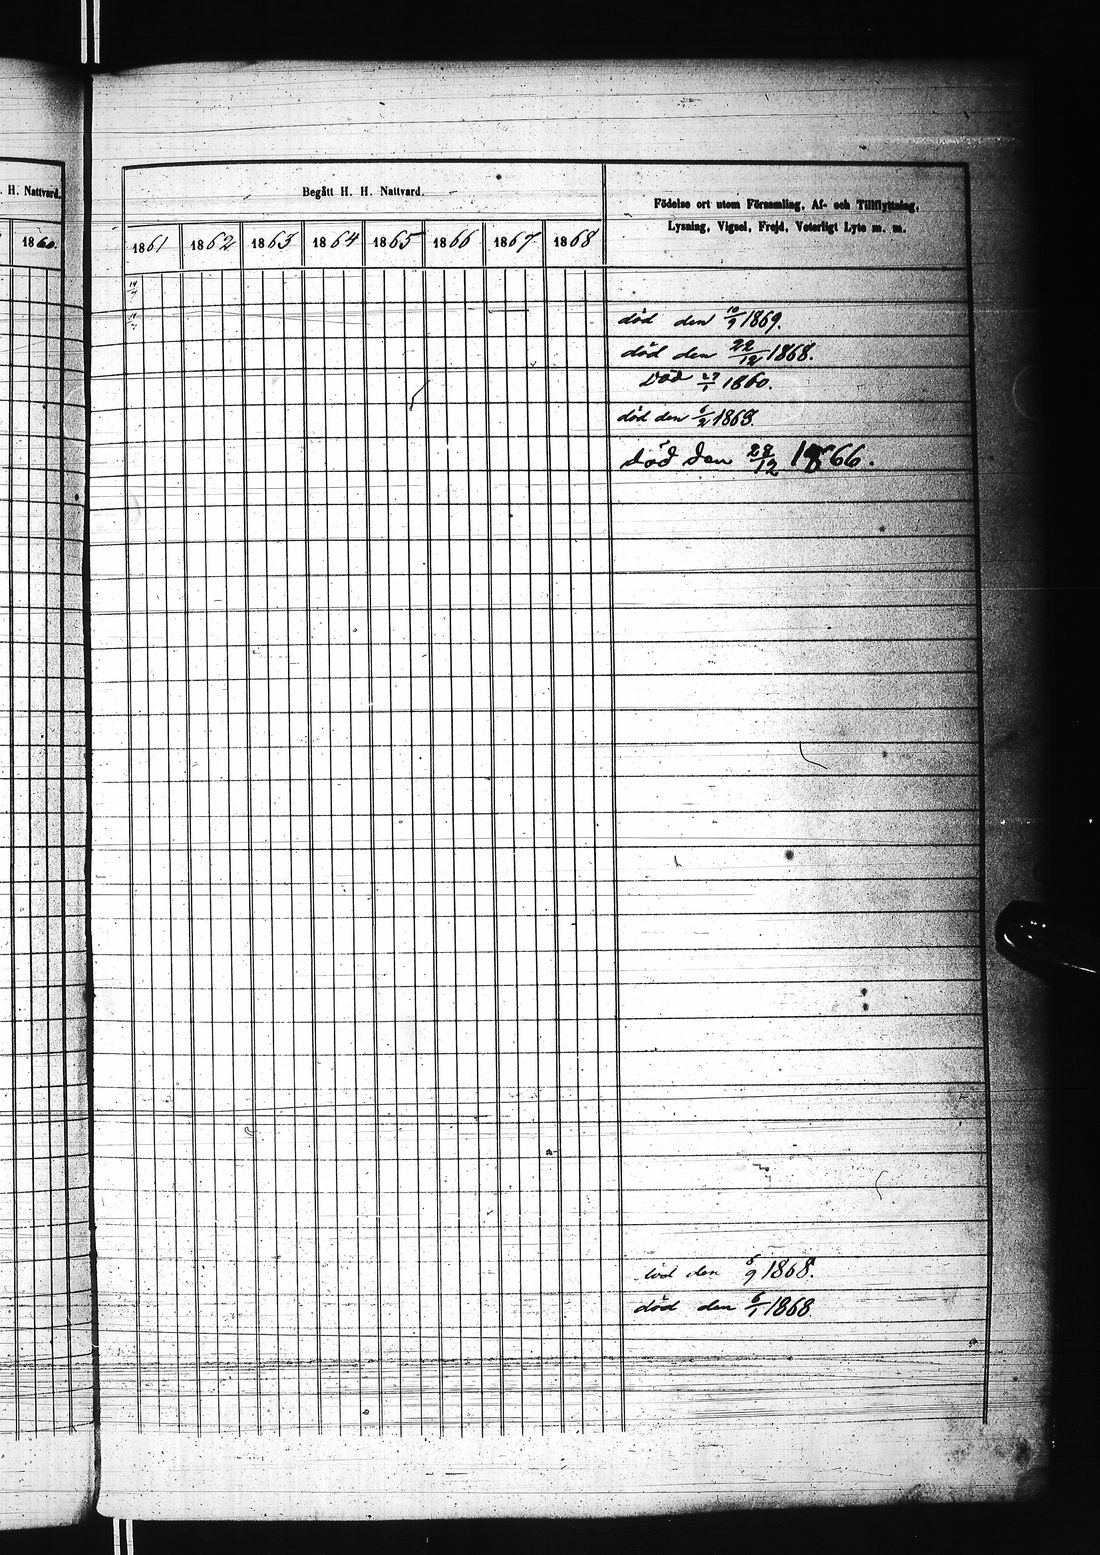 . H. Nattvard.
1860.
Begått H. H. Nattvard.
Födelse ort utom Församling, Af- och Tillflyttning,
Lysning, Vigsel, Frejd, Veterligt Lyte m. m.
1861 1862 1863 1864 1865 1866 1867 1868
död den 10/9 1869.
död den 22/12 1868.
Död 27/1 1860.
död den /2 1869.
död den 28/12 1866.
död den 6/9 1868.
död den 6/1 1868.